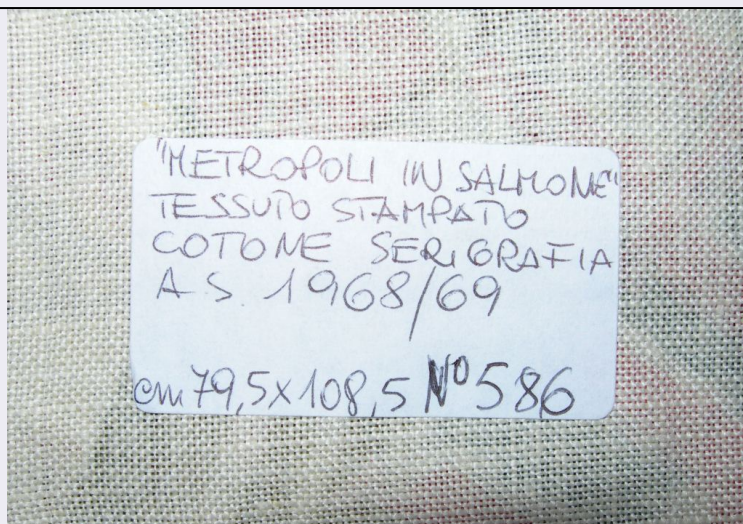 "METROPOLI IN SALMONE"
TESSUTO STAMPATO
COTONE SERIGRAFIA
A.S. 1968/69
cm 79,5X108,5 N° 586